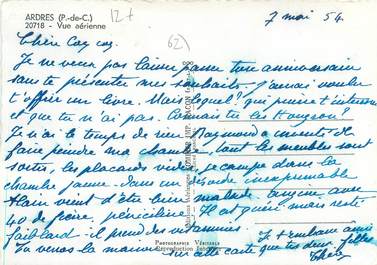 ARDRES (P.-de-C.)
20718 - Vue aérienne
12+
62
7 mai 54.
Chère Cay cay.
Je ne veux pas laisser passer ton anniversaire
sans te présenter mes souhaits. J'aurais voulu
t'offrir un livre. Mais lequel? qui puisse t'intéresser
et que tu n'ai pas. Connais tu les
Je n'ai le temps de rien Raymond a de
faire peindre ma chambre, tout les meubles sont
sortis, les placards vides, je campe dans la
chambre jaune. Dans un désordre inexprimable
Alain vient d'être bien malade angine avec
40 de fièvre, péniciline. Il est guéri mais reste
faiblard - il prend des vitamines
Tu verras la maison sur cette carte que tes deux filles
Je t'embrasse ainsi
PHOTOGRAPHIE Véritable
Reproduction Interdite